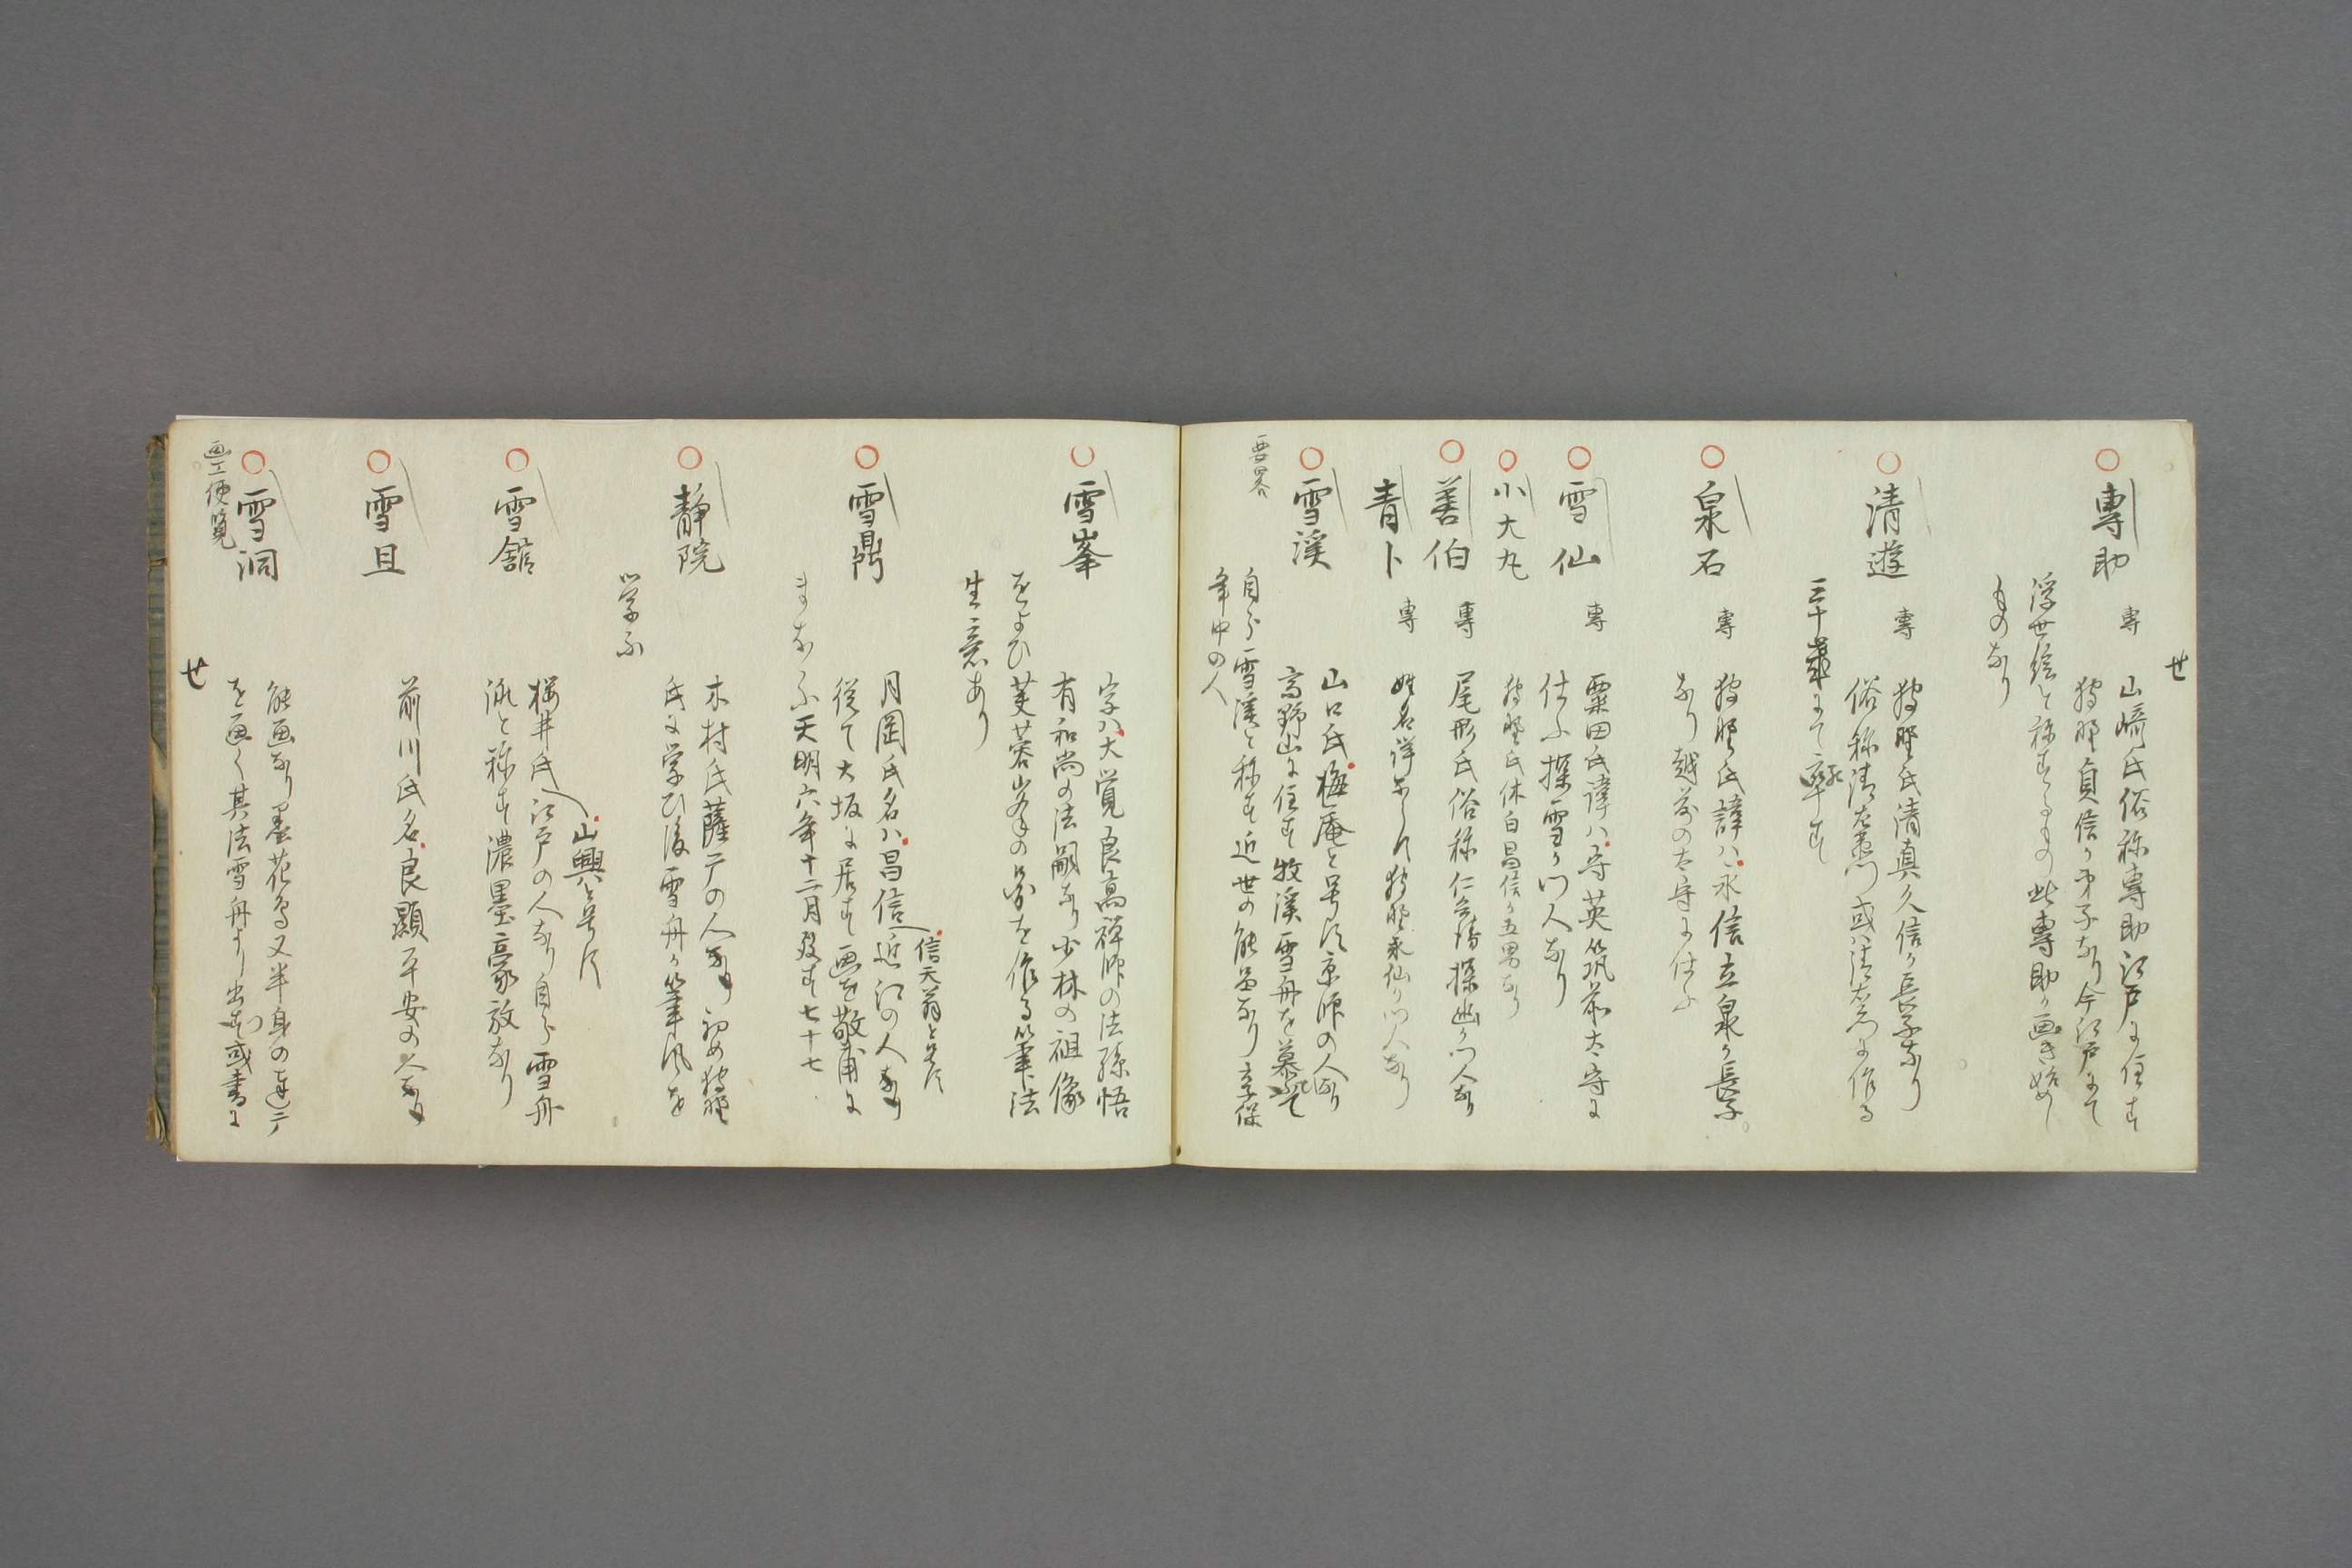 せ
專助
專
山﨑氏俗称專助江戸に住す
狩野貞信か弟子なり今江戸にて
浮世絵と称するもの此專助か画き始めし
ものなり
清遊
專
狩野氏清真久信か長子なり
俗称清左衛門或ハ清右衛門に作る
三十歳にて卒す
泉石
專
狩野氏諱ハ永信立泉か長子
なり越前の太守に仕ふ
雪仙
專
粟田氏諱ハ守英筑前太守に
仕ふ探雪か門人なり
小大丸
狩野氏休白昌信か五男なり
善伯
專
尾形氏俗称仁兵衛探幽か門人なり
青卜
專
姓名詳ならす狩野永仙か門人なり
雪溪
山口氏梅庵と号す京師の人なり
高野山に住す牧溪雪舟を慕て
自ら雪溪と称す近世の能画なり享保
年中の人
要畧
雪峯
字ハ大覚良高禅師の法孫悟
有和尚の法嗣なり少林の祖像
をよひ芙蓉山水の図を作る筆法
生意あり
雪鼎
信天翁と号す
月岡氏名ハ昌信近江の人なり
従て大坂に居す画を敬甫に
まなふ天明六年十二月歿す七十七
静院
木村氏薩广の人なり初め狩野
氏に学ひ後雪舟か筆風を
学ふ
雪舘
山興と号す
桜井氏江戸の人なり自ら雪舟
流と称す濃墨豪放なり
雪旦
前川氏名良顯平安の人なり
雪洞
画工便覧
能画なり墨花鳥又半身の達广
を画く其法雪舟より出つ或書に
せ